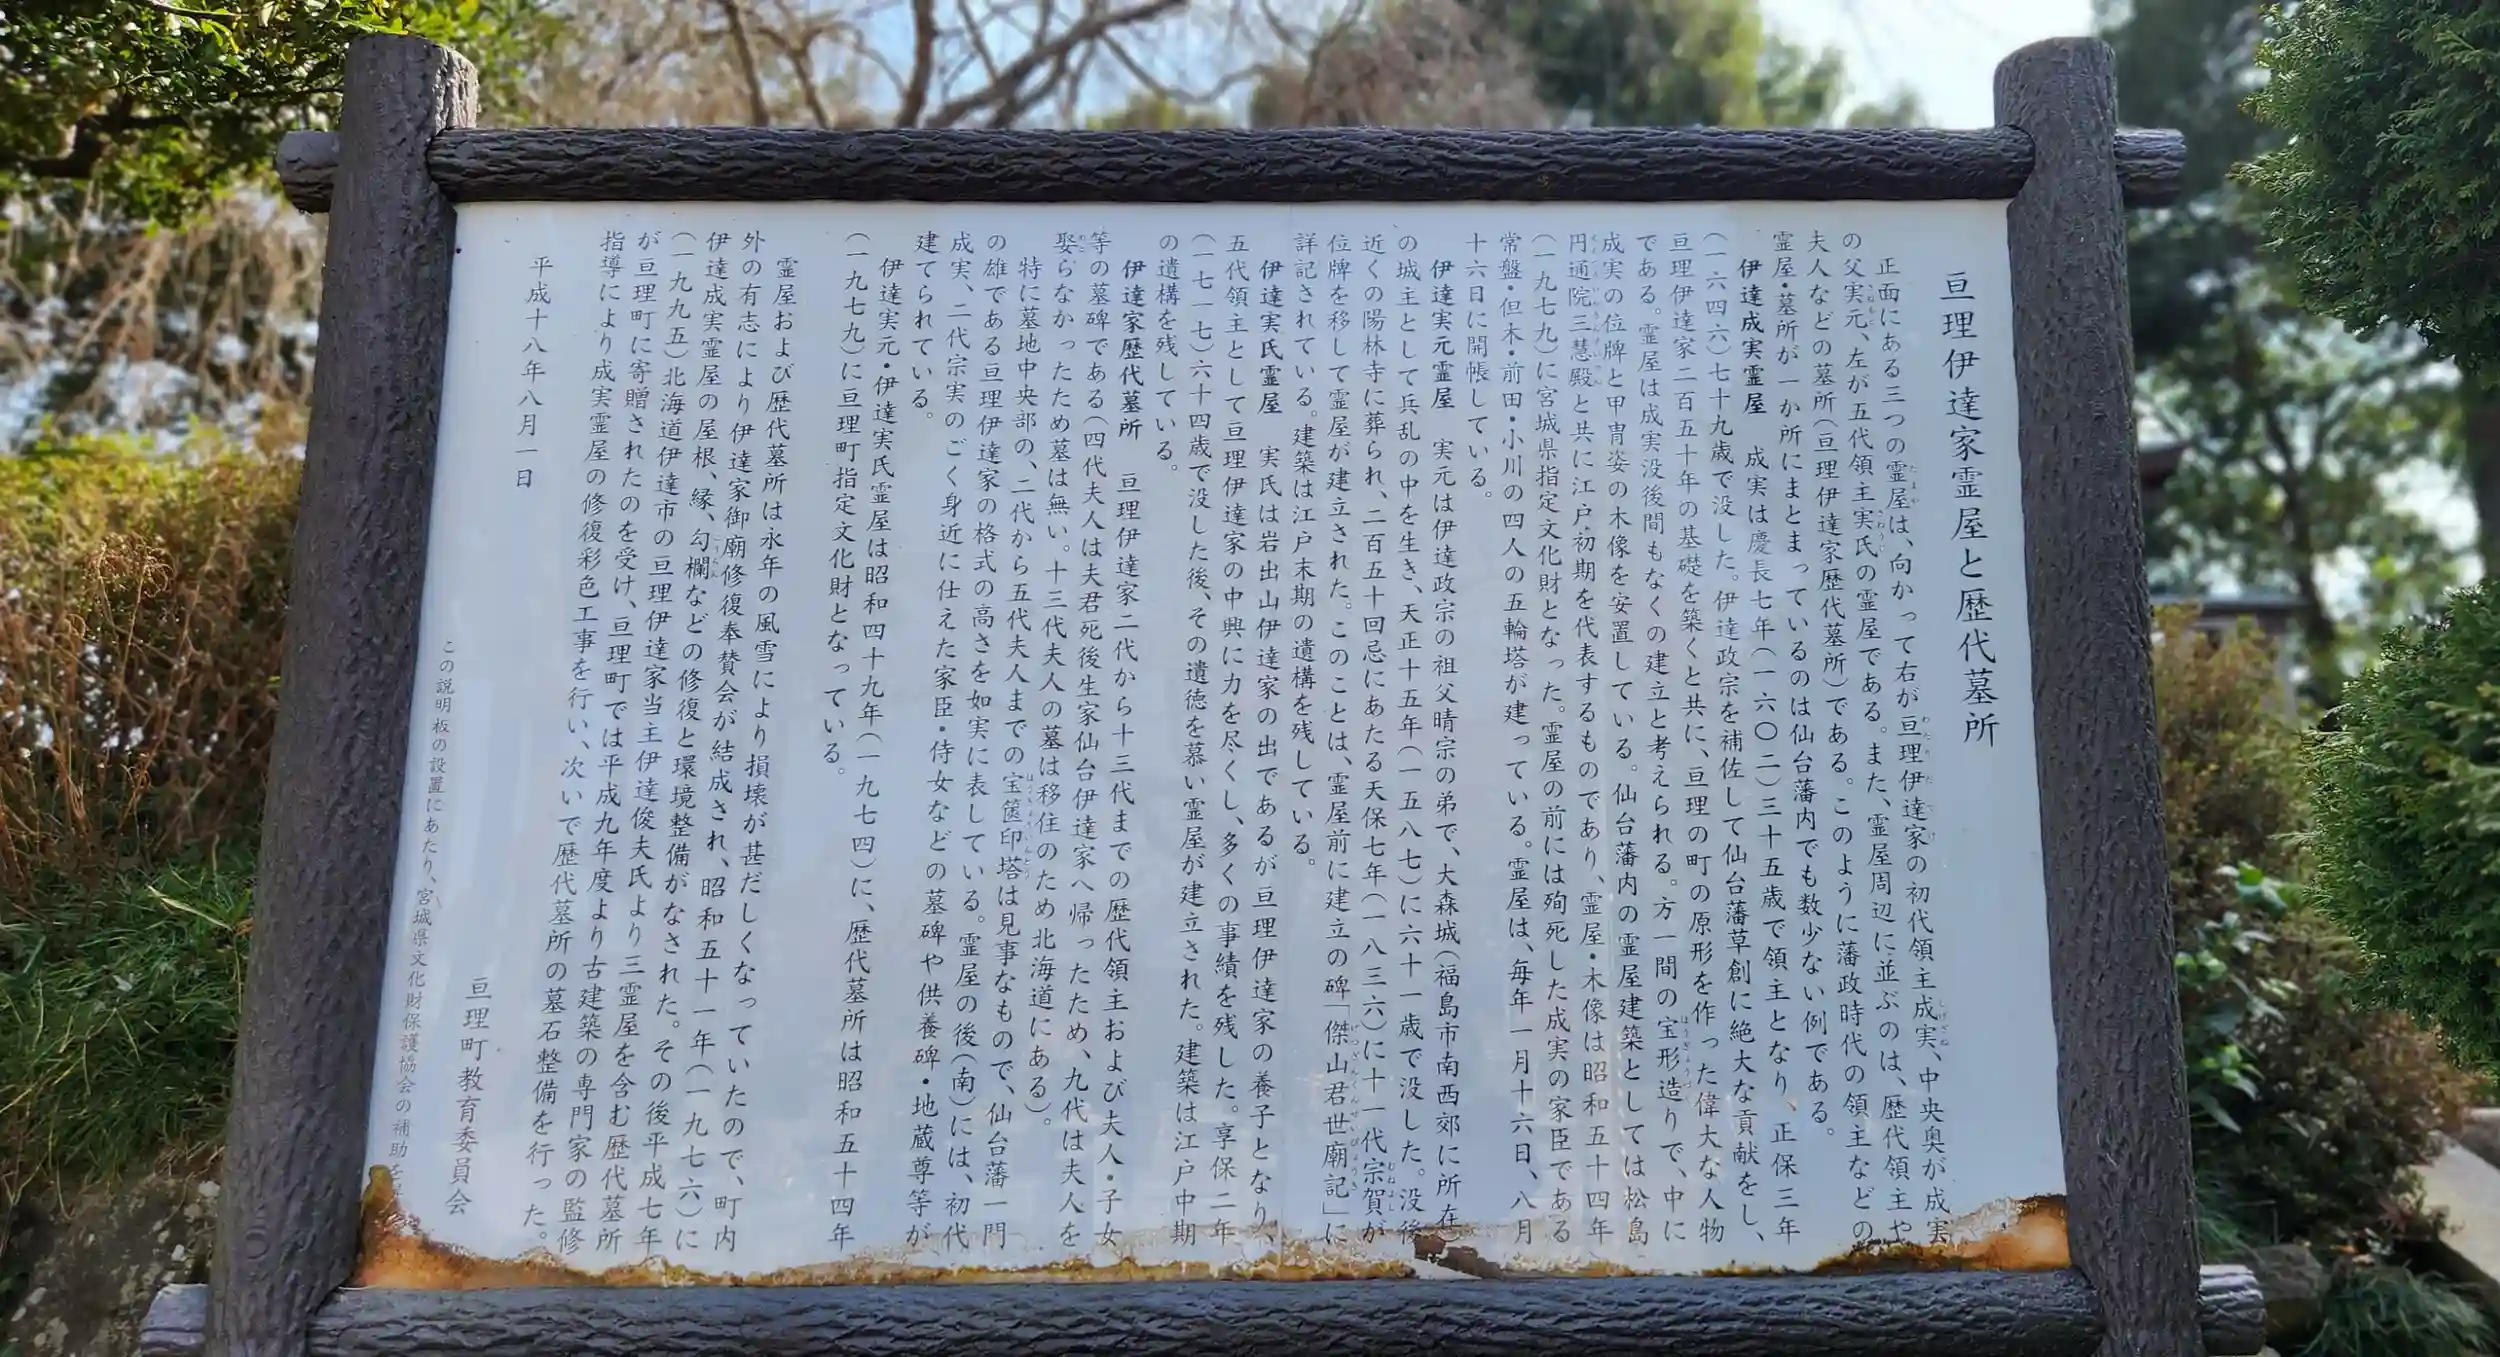 亘理伊達家霊屋と歴代墓所
正面にある三つの霊屋は、向かって右が亘理伊達家の初代領主成実、中央奥が成実
の父実元、左が五代領主実氏の霊屋である。また、霊屋周辺に並ぶのは、歴代領主や
夫人などの墓所(亘理伊達家歴代墓所)である。このように藩政時代の領主などの
霊屋・墓所が一か所にまとまっているのは仙台藩内でも数少ない例である。
伊達成実霊屋 成実は慶長七年(一六〇二)三十五歳で領主となり、正保三年
(一六四六)七十九歳で没した。伊達政宗を補佐して仙台藩草創に絶大な貢献をし、
亘理伊達家二百五十年の基礎を築くと共に、亘理の町の原形を作った偉大な人物
である。霊屋は成実没後間もなくの建立と考えられる。方一間の宝形造りで、中に
成実の位牌と甲冑姿の木像を安置している。仙台藩内の霊屋建築としては松島
円通院三慧殿と共に江戸初期を代表するものであり、霊屋・木像は昭和五十四年
(一九七九)に宮城県指定文化財となった。霊屋の前には殉死した成実の家臣である
常盤・但木・前田・小川の四人の五輪塔が建っている。霊屋は、毎年一月十六日、八月
十六日に開帳している。
伊達実元霊屋 実元は伊達政宗の祖父晴宗の弟で、大森城(福島市南西郊に所在)
の城主として兵乱の中を生き、天正十五年(一五八七)に六十一歳で没した。没後
近くの陽林寺に葬られ、二百五十回忌にあたる天保七年(一八三六)に十一代宗賀が
位牌を移して霊屋が建立された。このことは、霊屋前に建立の碑「傑山君世廟記」に
詳記されている。建築は江戸末期の遺構を残している。
伊達実氏霊屋 実氏は岩出山伊達家の出であるが亘理伊達家の養子となり、
五代領主として亘理伊達家の中興に力を尽くし、多くの事績を残した。享保二年
(一七一七)六十四歳で没した後、その遺徳を慕い霊屋が建立された。建築は江戸中期
の遺構を残している。
伊達家歴代墓所 亘理伊達家二代から十三代までの歴代領主および夫人・子女
等の墓碑である(四代夫人は夫君死後生家仙台伊達家へ帰ったため、九代は夫人を
娶らなかったため墓は無い。十三代夫人の墓は移住のため北海道にある)。
特に墓地中央部の、二代から五代夫人までの宝篋印塔は見事なもので、仙台藩一門
の雄である亘理伊達家の格式の高さを如実に表している。霊屋の後(南)には、初代
成実、二代宗実のごく身近に仕えた家臣・侍女などの墓碑や供養碑・地蔵尊等が
建てられている。
伊達実元・伊達実氏霊屋は昭和四十九年(一九七四)に、歴代墓所は昭和五十四年
(一九七九)に亘理町指定文化財となっている。
霊屋および歴代墓所は永年の風雪により損壊が甚だしくなっていたので、町内
外の有志により伊達家御廟修復奉賛会が結成され、昭和五十一年(一九七六)に
伊達成実霊屋の屋根、縁、勾欄などの修復と環境整備がなされた。その後平成七年
(一九九五)北海道伊達市の亘理伊達家当主伊達俊夫氏より三霊屋を含む歴代墓所
が亘理町に寄贈されたのを受け、亘理町では平成九年度より古建築の専門家の監修
指導により成実霊屋の修復彩色工事を行い、次いで歴代墓所の墓石整備を行った。
平成十八年八月一日
亘理町教育委員会
この説明板の設置にあたり、宮城県文化財保護協会の補助を